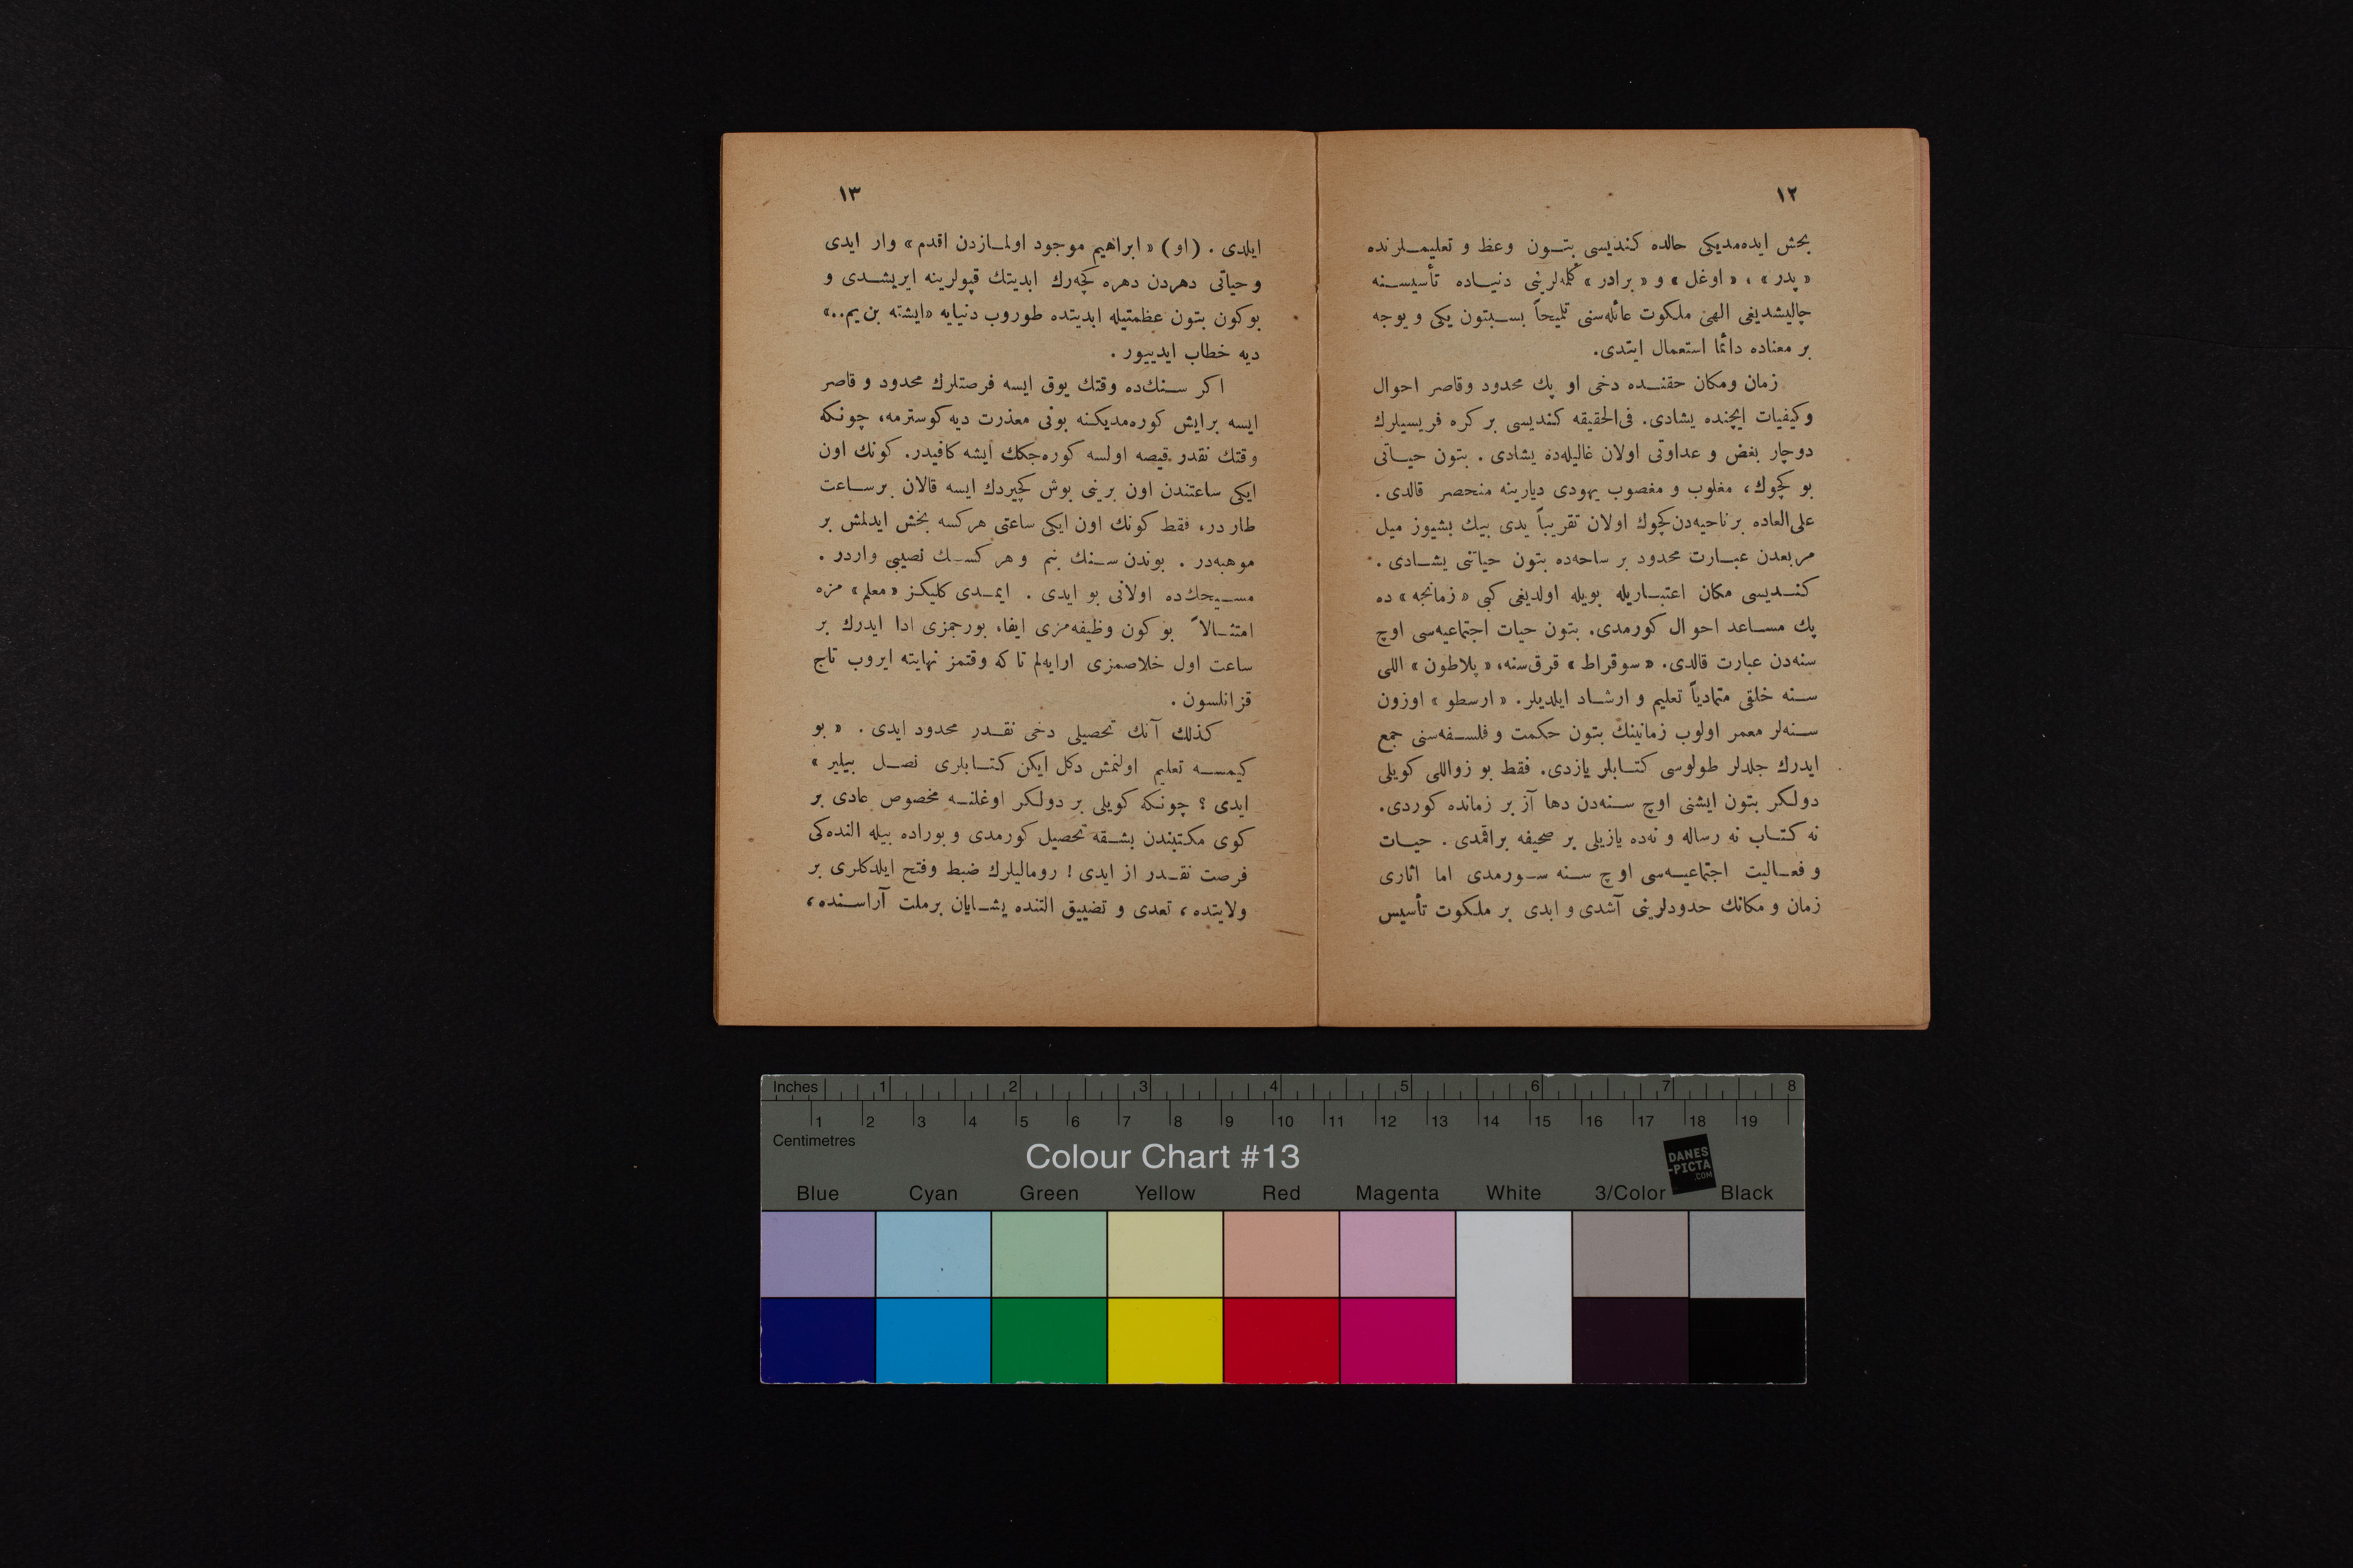 ١٢
بحش ایده‌مدیکی حالده کندیسی بتون وعظ و تعلیملرنده
« پدر » ، « اوغل » و « برادر » کلمه‌لرینی دنیاده تأسیسنه
چالیشدیغی الهی ملکوت عائله‌سنی تلمیحاً بسبتون یکی و یوجه
بر معناده دائما استعمال ایتدی.
زمان ومکان حقنده دخی او پك محدود وقاصر احوال
وکیفیات ایچنده یشادی. فی‌الحقیقه کندیسی بر کره فریسیلرك
دوچار بغض و عداوتی اولان غالیله‌ده یشادی . بتون حیاتی
بو کچوك، مغلوب و مغصوب یهودی دیارینه منحصر قالدی.
علی‌العاده بر ناحیه‌دن کچوك اولان تقریباً یدی بیك بشیوز میل
مربعدن عبارت محدود بر ساحه‌ده بتون حیاتنی یشادی .
کندیسی مکان اعتباریله بویله اولدیغی کبی « زمانجه » ده
پك مساعد احوال کورمدی. بتون حیات اجتماعیه‌سی اوچ
سنه‌دن عبارت قالدی. « سوقراط » قرق‌سنه، « پلاطون » اللی
سنه خلقی متمادیاً تعلیم و ارشاد ایلدیلر. « ارسطو » اوزون
سنه‌لر معمر اولوب زمانینك بتون حکمت و فلسفه‌سنی جمع
ایدرك جلدلر طولوسی کتابلر یازدی. فقط بو زواللی کویلی
دولکر بتون ایشنی اوچ سنه‌دن دها آز بر زمانده کوردی.
نه کتاب نه رساله و نه‌ده یازیلی بر صحیفه براقمدی . حیات
و فعالیت اجتماعیه‌سی اوچ سنه سورمدی اما اثاری
زمان و مکانك حدودلرینی آشدی و ابدی بر ملکوت تأسیس
١٣
ایلدی . (او) « ابراهیم موجود اولمازدن اقدم » وار ایدی
و حیاتی دهردن دهره کچه‌رك ابدیتك قپولرینه ایریشدی و
بوکون بتون عظمتیله ابدیتده طوروب دنیایه «ایشته بن یم..»
دیه خطاب ایدییور .
اکر سنك‌ده وقتك یوق ایسه فرصتلرك محدود و قاصر
ایسه برایش کوره‌مدیکنه بونی معذرت دیه کوسترمه، چونکه
وقتك نقدر قیصه اولسه کوره‌جکك ایشه کافیدر. کونك اون
ایکی ساعتندن اون برینی بوش کچیردك ایسه قالان برساعت
طاردر، فقط کونك اون ایکی ساعتی هرکسه بخش ایدلمش بر
موهبه‌در . بوندن سنك بنم و هر کسك نصیبی واردر .
مسیحك‌ده اولانی بو ایدی . ایمدی کلیکز « معلم » مزه
امتثالاً بوکون وظیفه‌مزی ایفا، بورجمزی ادا ایدرك بر
ساعت اول خلاصمزی ارایه‌لم تا که وقتمز نهایته ایروب تاج
قزانلسون .
کذلك آنك تحصیلی دخی نقدر محدود ایدی . « بو
کیمسه تعلیم اولنمش دکل ایکن کتابلری نصل بیلیر »
ایدی ؟ چونکه کویلی بر دولکر اوغلنه مخصوص عادی بر
کوی مکتبندن بشقه تحصیل کورمدی و بوراده بیله النده‌کی
فرصت نقدر از ایدی ! رومالیلرك ضبط وفتح ایلدکلری بر
ولایتده ، تعدی و تضییق التنده یشایان برملت آراسنده ،
Inches 1 2 3 4 5 6 7 8
1 2 3 4 5 6 7 8 9 10 11 12 13 14 15 16 17 18 19
Centimetres
Colour Chart #13
DANES
-PICTA
.COM
Blue Cyan Green Yellow Red Magenta White 3/Color Black